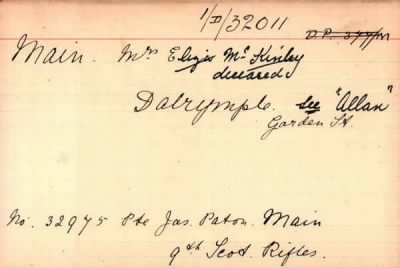 1/II/32011 D.P. 377/M
Main. Mrs Elizis McKinley
deceased
Dalrymple. See "Allan"
Garden St.
No. 32975 Pte Jas. Paton. Main
9th Scot. Rifles.